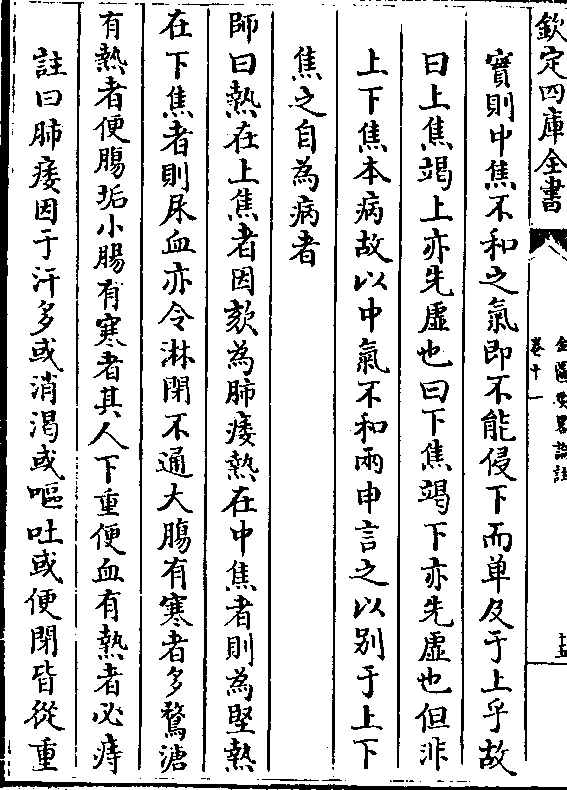 欽定四庫全書
金匱要畧論註
卷十一
實則中焦不和之氣即不能侵下而单及于上乎故
曰上焦竭上亦先虛也曰下焦竭下亦先虛也但非
上下焦本病故以中氣不和兩申言之以别于上下
焦之自為病者
師曰熱在上焦者因欬為肺痿熱在中焦者則為堅熱
在下焦者則尿血亦令淋閉不通大腸有寒者多鶩溏
有熱者便腸垢小腸有寒者其人下重便血有熱者必痔
註曰肺痿因于汗多或消渴或嘔吐或便閉皆從重